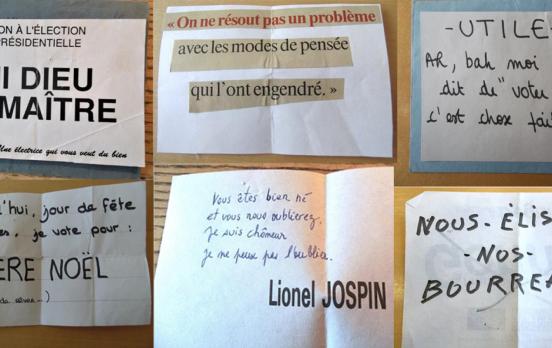 ON À L'ÉLECTION
PRÉSIDENTIELLE
I DIEU
MAÎTRE
Une électrice qui vous veut du bien
« On ne résout pas un problème
avec les modes de pensée
qui l'ont engendré. »
- UTILE -
Ah, bah moi
dit de "voter
c'est chose fai
'hui, jour de fête
je vote pour :
ERE NOËL
Vous êtes bien né
et vous nous oublierez.
Je suis chômeur
je ne peux pas l'oublier.
Lionel JOSPIN
NOUS - ÉLIS
- NOS -
BOURREA